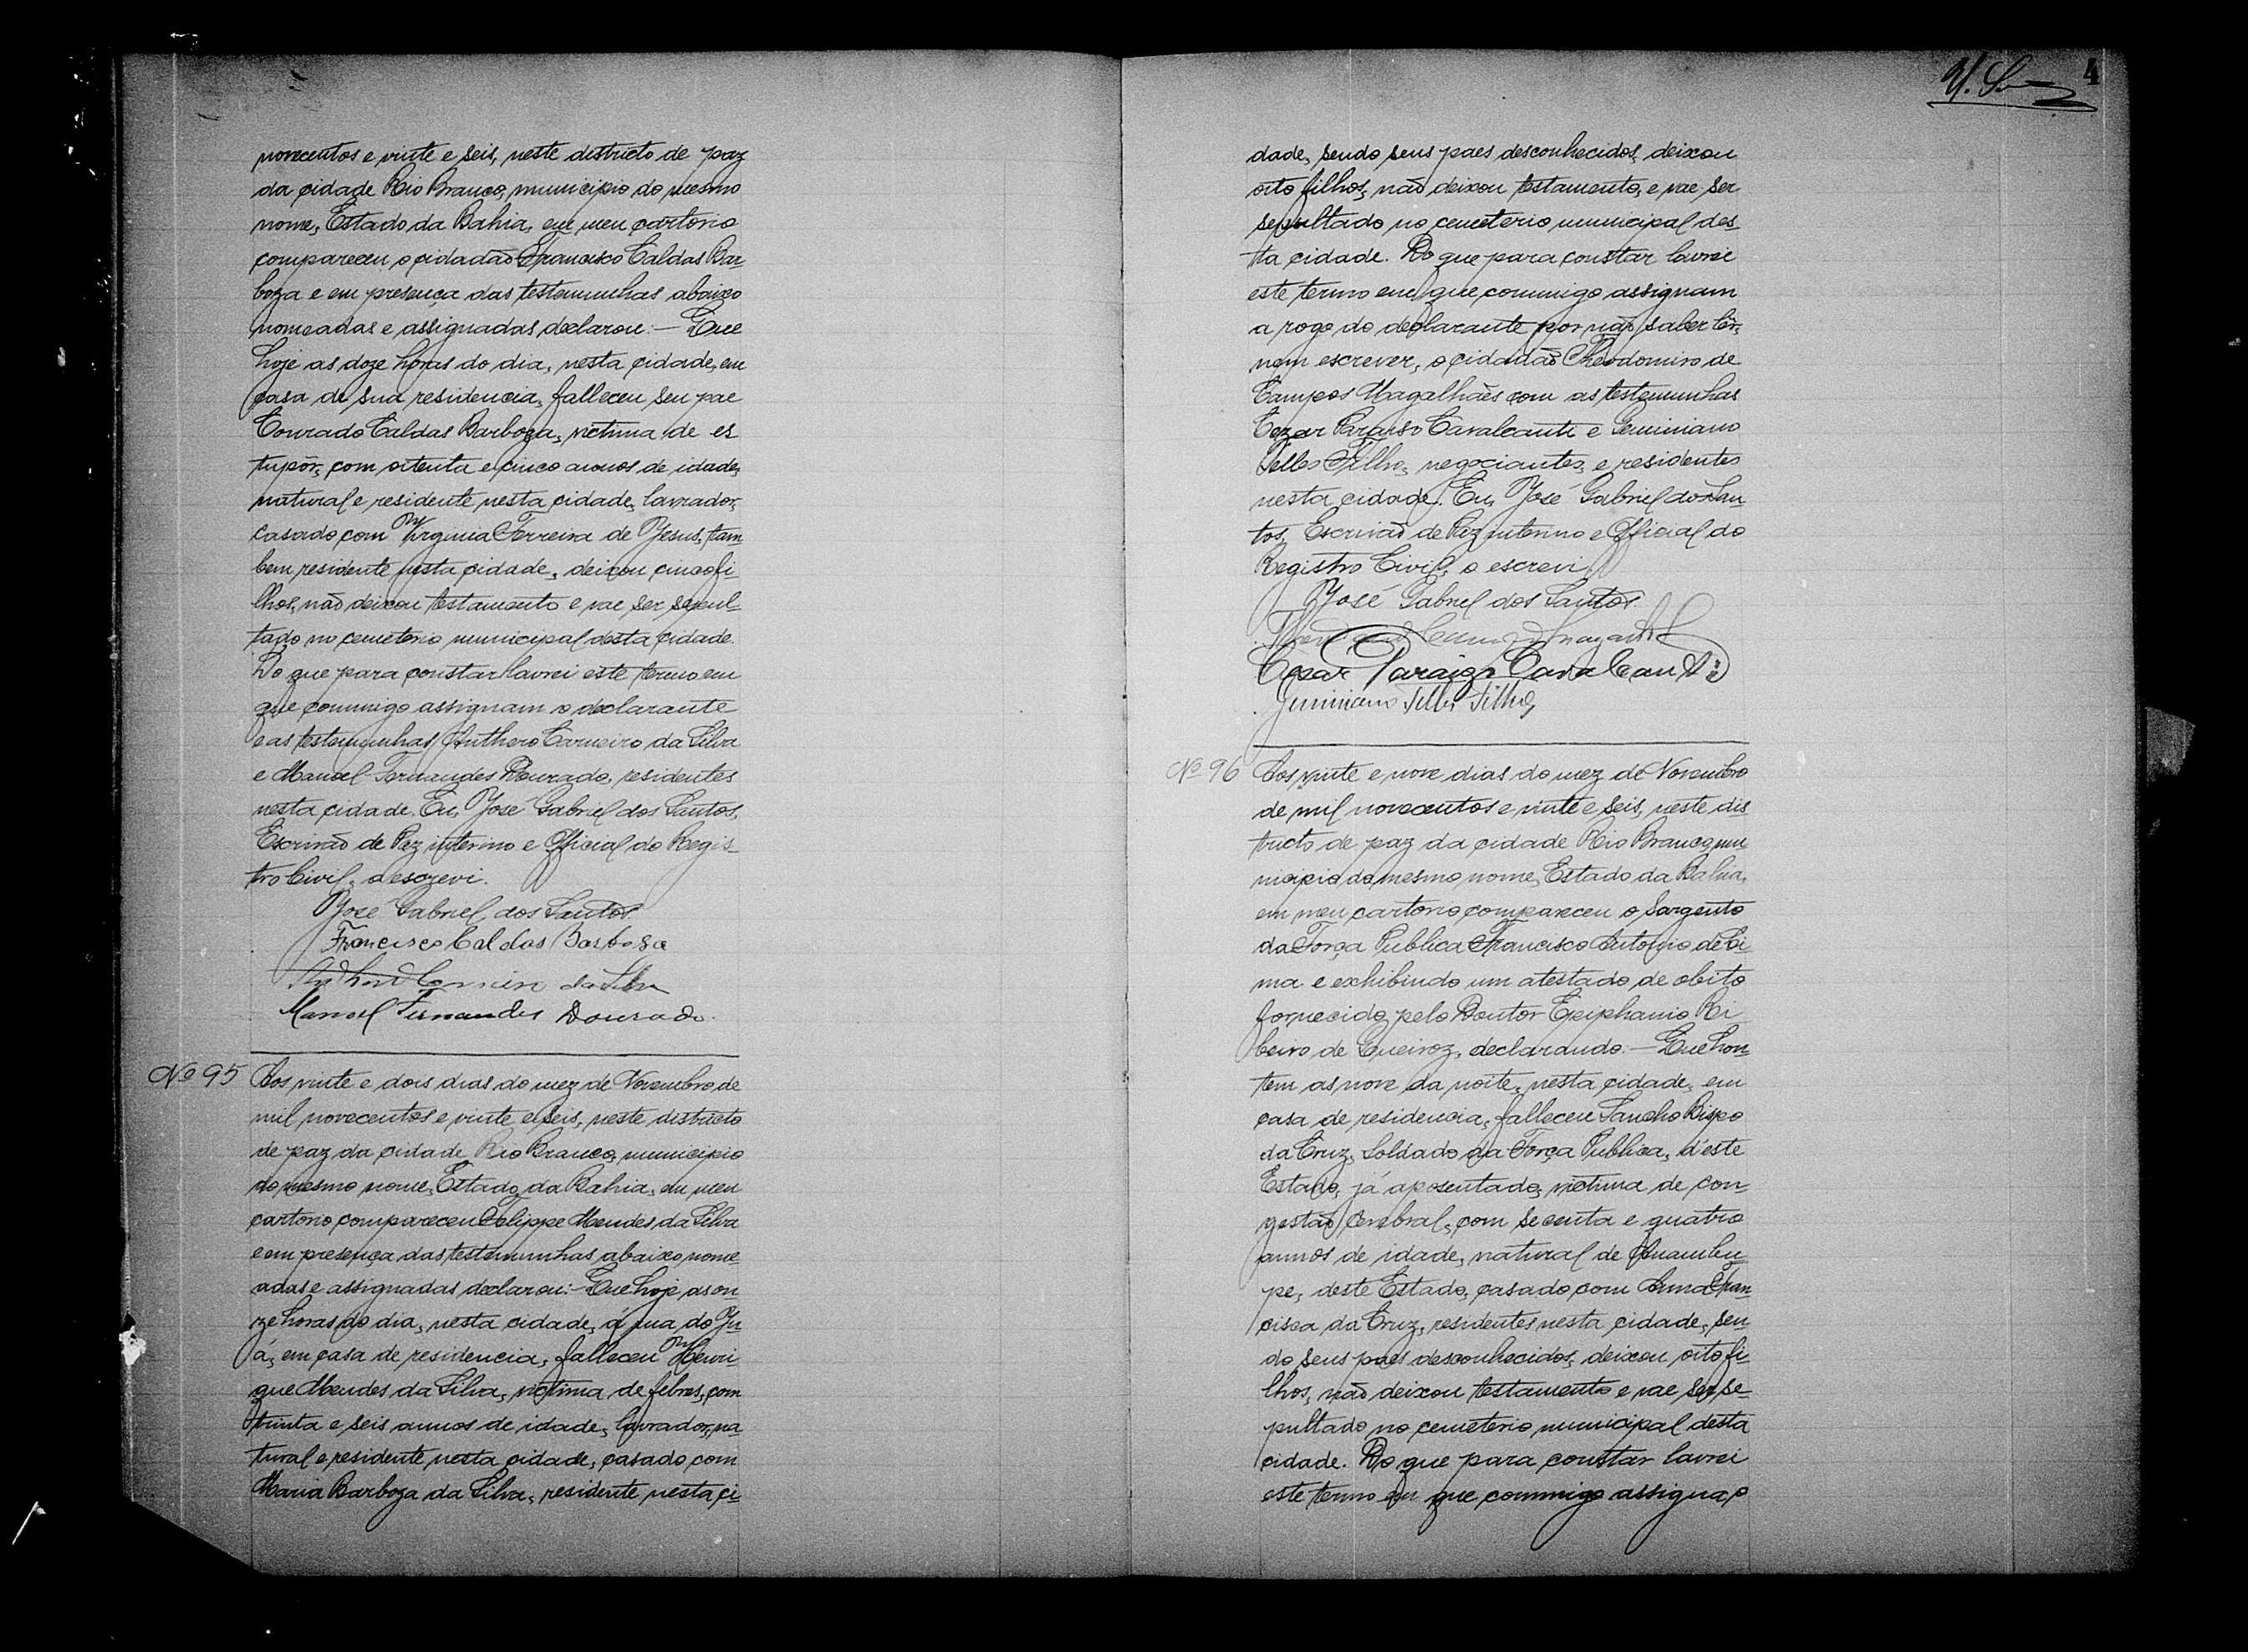 novecentos e vinte e seis, neste districto de paz
da cidade Rio Branco, municipio do mesmo
nome, Estado da Bahia, em meu cartorio
compareceu o cidadão Francisco Caldas Bar-
boza e em presença das testemunhas abaixo
nomeadas e assignadas declarou:— Que
hoje as doze horas do dia, nesta cidade, em
casa de sua residencia, falleceu seu pae
Conrado Caldas Barboza, victima de es
tupôr, com oitenta e cinco annos de idade,
natural e residente nesta cidade, lavrador,
casado com Virginia Ferreira de Jesus, tam-
bem residente nesta cidade, deixou cinco fi-
lhos, não deixou testamento e vae ser sepul-
tado no cemeterio municipal desta cidade.
Do que para constar lavrei este termo em
que commigo assignam o declarante
e as testemunhas Anthero Carneiro da Silva
e Manoel Fernandes Dourado, residentes
nesta cidade. Eu, José Gabriel dos Santos,
Escrivão de Paz interino e Official do Regis-
tro Civil, o escrevi.
José Gabriel dos Santos
Francisco Caldas Barbosa
Anthero Carneiro da Silva
Manoel Fernandes Dourado.
Nº 95 Aos vinte e dois dias do mez de Novembro, de
mil novecentos e vinte e seis, neste districto
de paz da cidade Rio Branco, municipio
do mesmo nome, Estado da Bahia, em meu
cartorio compareceu Felippe Mendes da Silva
e em presença das testemunhas abaixo nome-
adas e assignadas declarou:— Que hoje as on-
ze horas do dia, nesta cidade, á rua do Ju-
á, em casa de residencia, falleceu Henri-
que Mendes da Silva, victima de febres, com
trinta e seis annos de idade, lavrador, na-
tural e residente nesta cidade, casado com
Maria Barboza da Silva, residente nesta ci-
4
dade, sendo seus paes desconhecidos, deixou
oito filhos, não deixou testamento, e vae ser
sepultado no cemeterio municipal des-
ta cidade. Do que para constar lavrei
este termo em que commigo assignam
a rogo do declarante por não saber lêr,
nem escrever, o cidadão Theodomiro de
Campos Magalhães com as testemunhas
Cezar Paraiso Cavalcante e Geminiano
Telles Filho, negociantes, e residentes
nesta cidade. Eu, José Gabriel dos San-
tos, Escrivão de Paz interino e Official do
Registro Civil, o escrevi.
José Gabriel dos Santos.
Cesar Paraizo Cavalcanti
Geminiano Telles Filho,
Nº 96 Aos vinte e nove dias do mez de Novembro
de mil novecentos e vinte e seis, neste dis
tricto de paz da cidade Rio Branco, mu
nicipio do mesmo nome, Estado da Bahia,
em meu cartorio compareceu o Sargento
da Força Publica Francisco Antonio de Li-
ma e exhibindo um atestado de obito
fornecido pelo Doutor Epiphanio Ri
beiro de Queiroz, declarando:— Que hon-
tem as nove da noite, nesta cidade, em
casa de residencia, falleceu Sancho Bispo
da Cruz, Soldado da Força Publica, d'este
Estado, já aposentado, victima de con-
gestão cerebral, com secenta e quatro
annos de idade, natural de Inhambu-
pe, deste Estado, casado com Anna Fran
cisca da Cruz, residentes nesta cidade, sen-
do seus paes desconhecidos, deixou oito fi-
lhos, não deixou testamento e vae ser se-
pultado no cemeterio municipal desta
cidade. Do que para constar lavrei
este termo em que commigo assigna, o